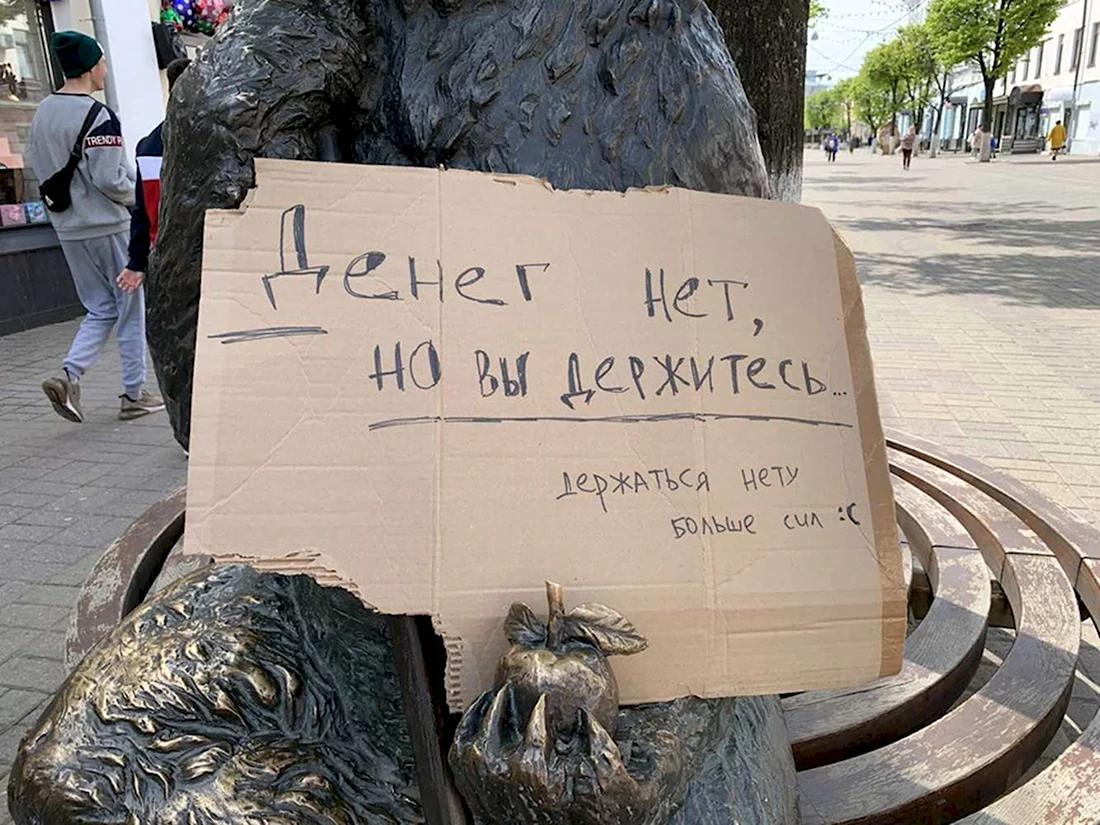 TRENDY
Денег нет,
но вы держитесь...
держаться нету
больше сил :C